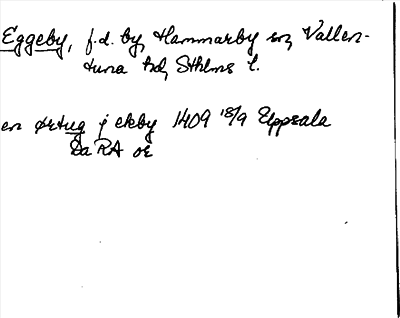 Eggeby, f.d. by, Hammarby sn, Vallen-
tuna hd, Sthlms l.
en ørtug j ekby 1409 18/9 Uppsala
Da RA or